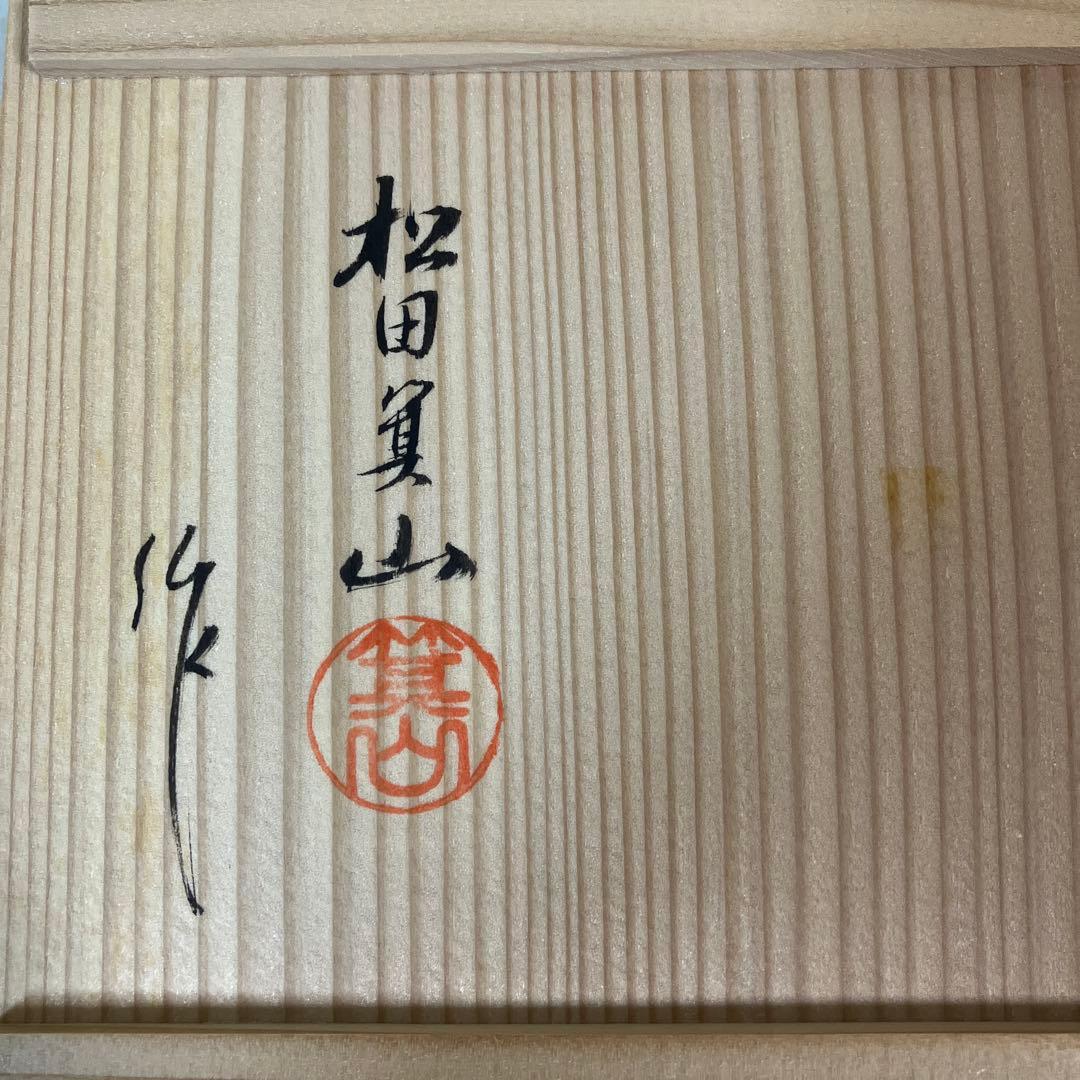 松田箕山
作
箕山